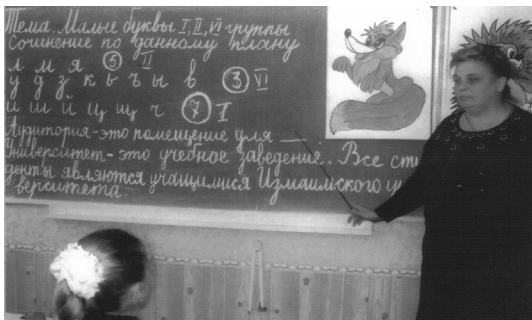 Тема. Малые буквы I, II, VI группы
Сочинение по данному плану
л м я ⑤ II
у д з к ь ъ ы в ③ VI
и ш й ц щ ч ⑦ I
Аудитория - это помещение для ___
Университет - это учебное заведение. Все сту
денты являются учащимися Измаильского у
верситета.